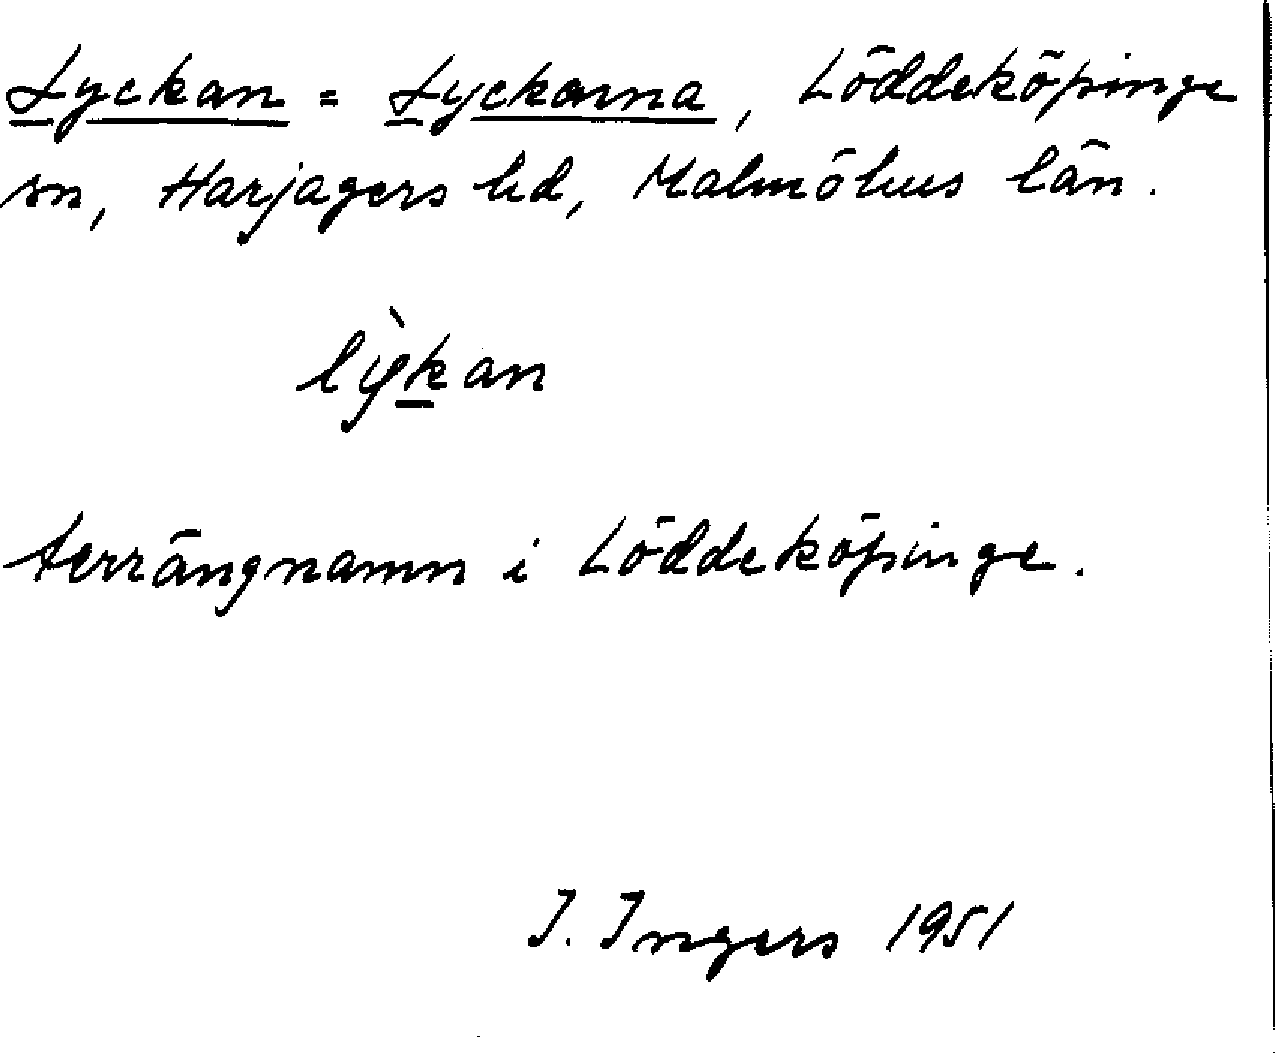 Lyckan = Lyckorna, Löddeköpinge
sn, Harjagers hd, Malmöhus län.
lỳkan
terrängnamn i Löddeköpinge.
I. Ingers 1951